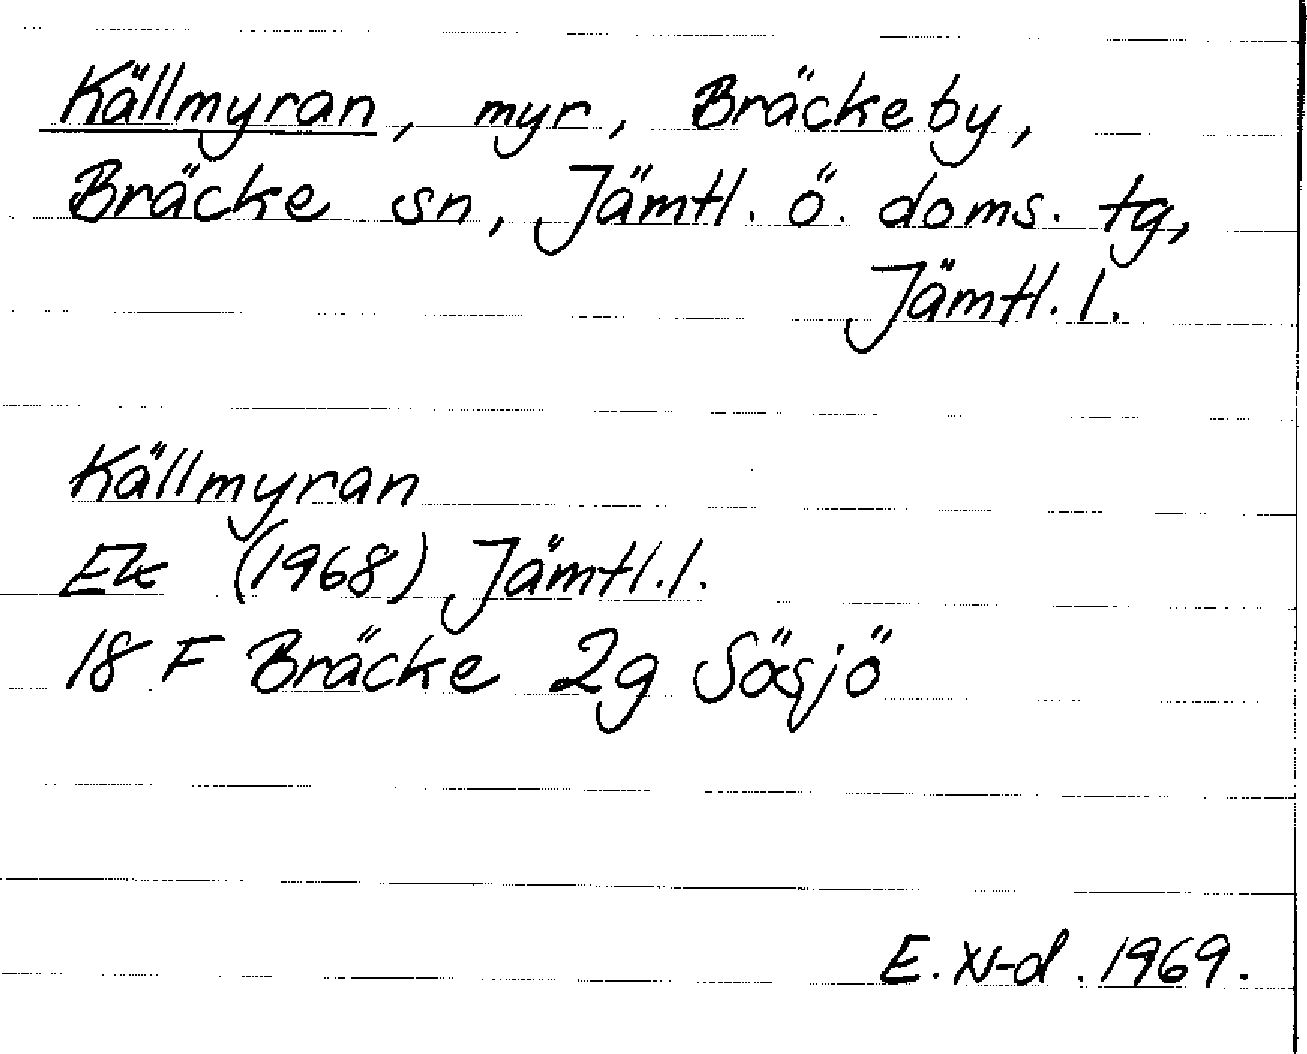 Källmyran, myr, Bräckeby,
Bräcke sn, Jämtl. ö. doms. tg,
Jämtl. l.
Källmyran
Ek (1968) Jämtl. l.
18 F Bräcke 2g Sösjö
E. N-d. 1969.